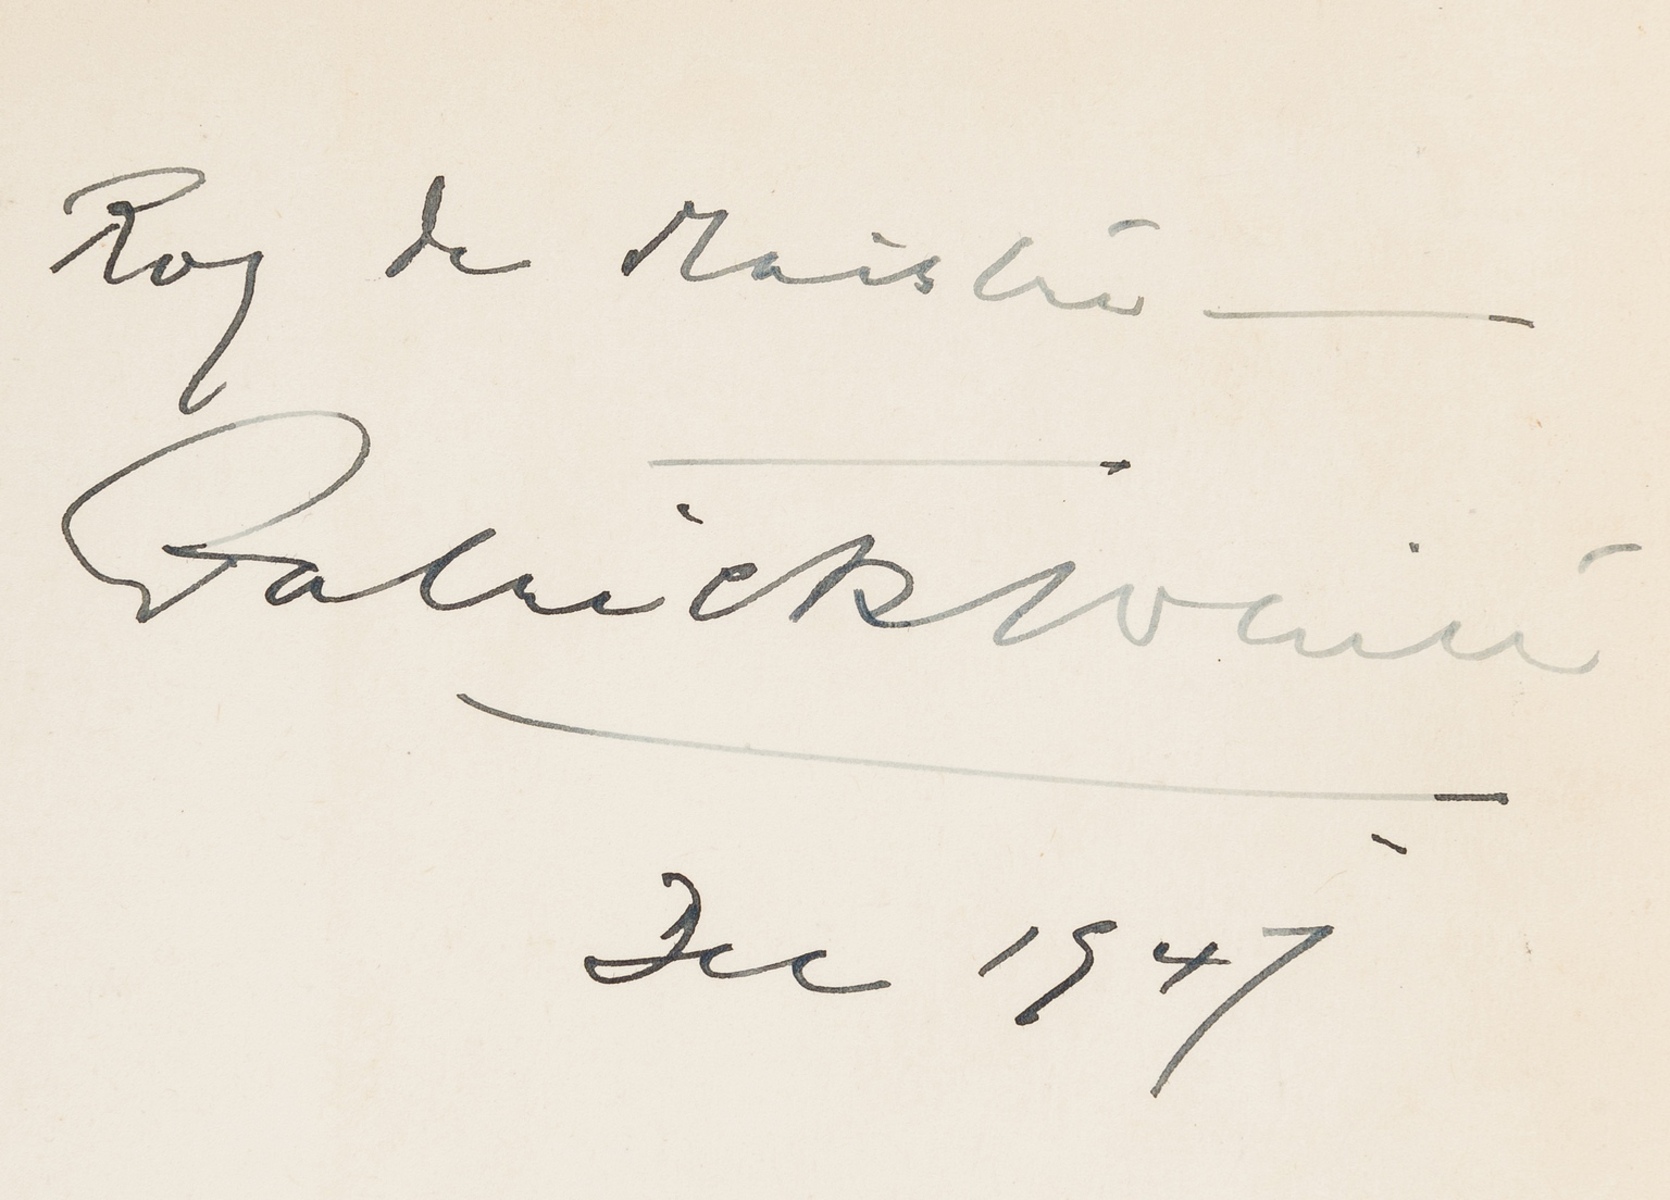 Roy de Maistre —
Patrick White
Dec 1947